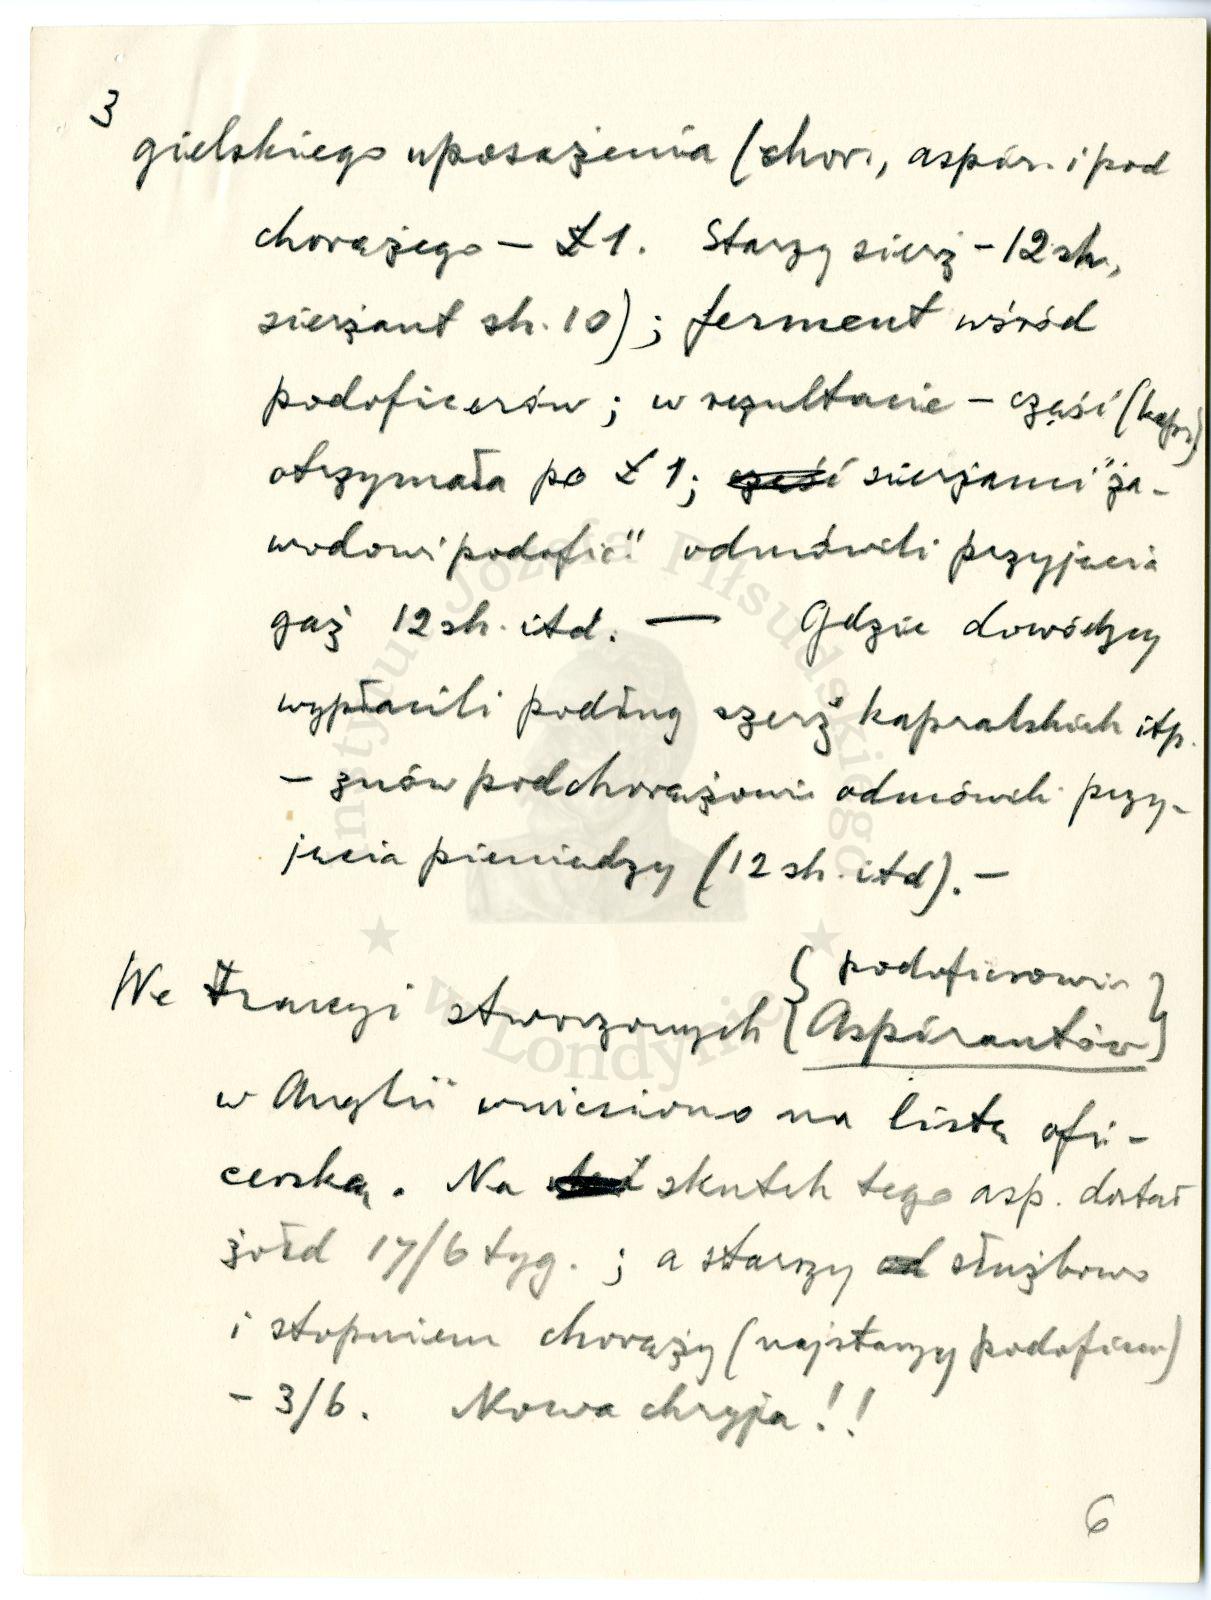 3
gielskiego uposażenia (chor., aspir. i pod
chorążego – £1. Starzy sierż – 12 sh.,
sierżant sh. 10); ferment wśród
podoficerów; w rezultacie – część (kapr.)
otrzymała po £1; sierżanci "za-
wodowi podofic." odmówili przyjęcia
gaż 12 sh. itd. — Gdzie dowódcy
wypłacili podług szerż kapralskich itp.
– znów podchorążowie odmówili przy-
jęcia pieniędzy (12 sh. itd). –
We Francyi stworzonych {Aspirantów}
{podoficerowie}
w Anglii wniesiono na listę ofi-
cerską. Na skutek tego asp. dostał
żołd 17/6 tyg. ; a starszy służbowo
i stopniem chorąży (najstarszy podoficer)
– 3/6. Nowa chryja!!
6
Instytut Józefa Piłsudskiego
w Londynie